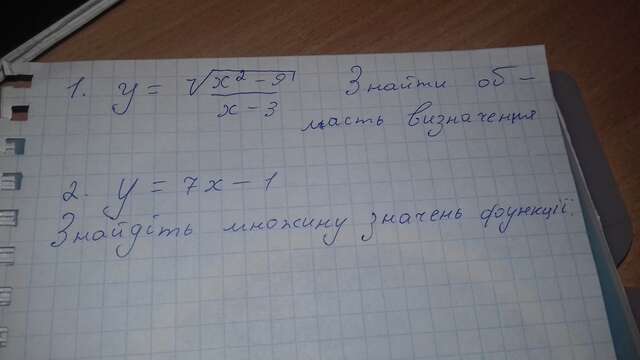 1. y = √(x² - 9) / (x - 3) Знайти об-
ласть визначення
2. y = 7x - 1
Знайдіть множину значень функції.